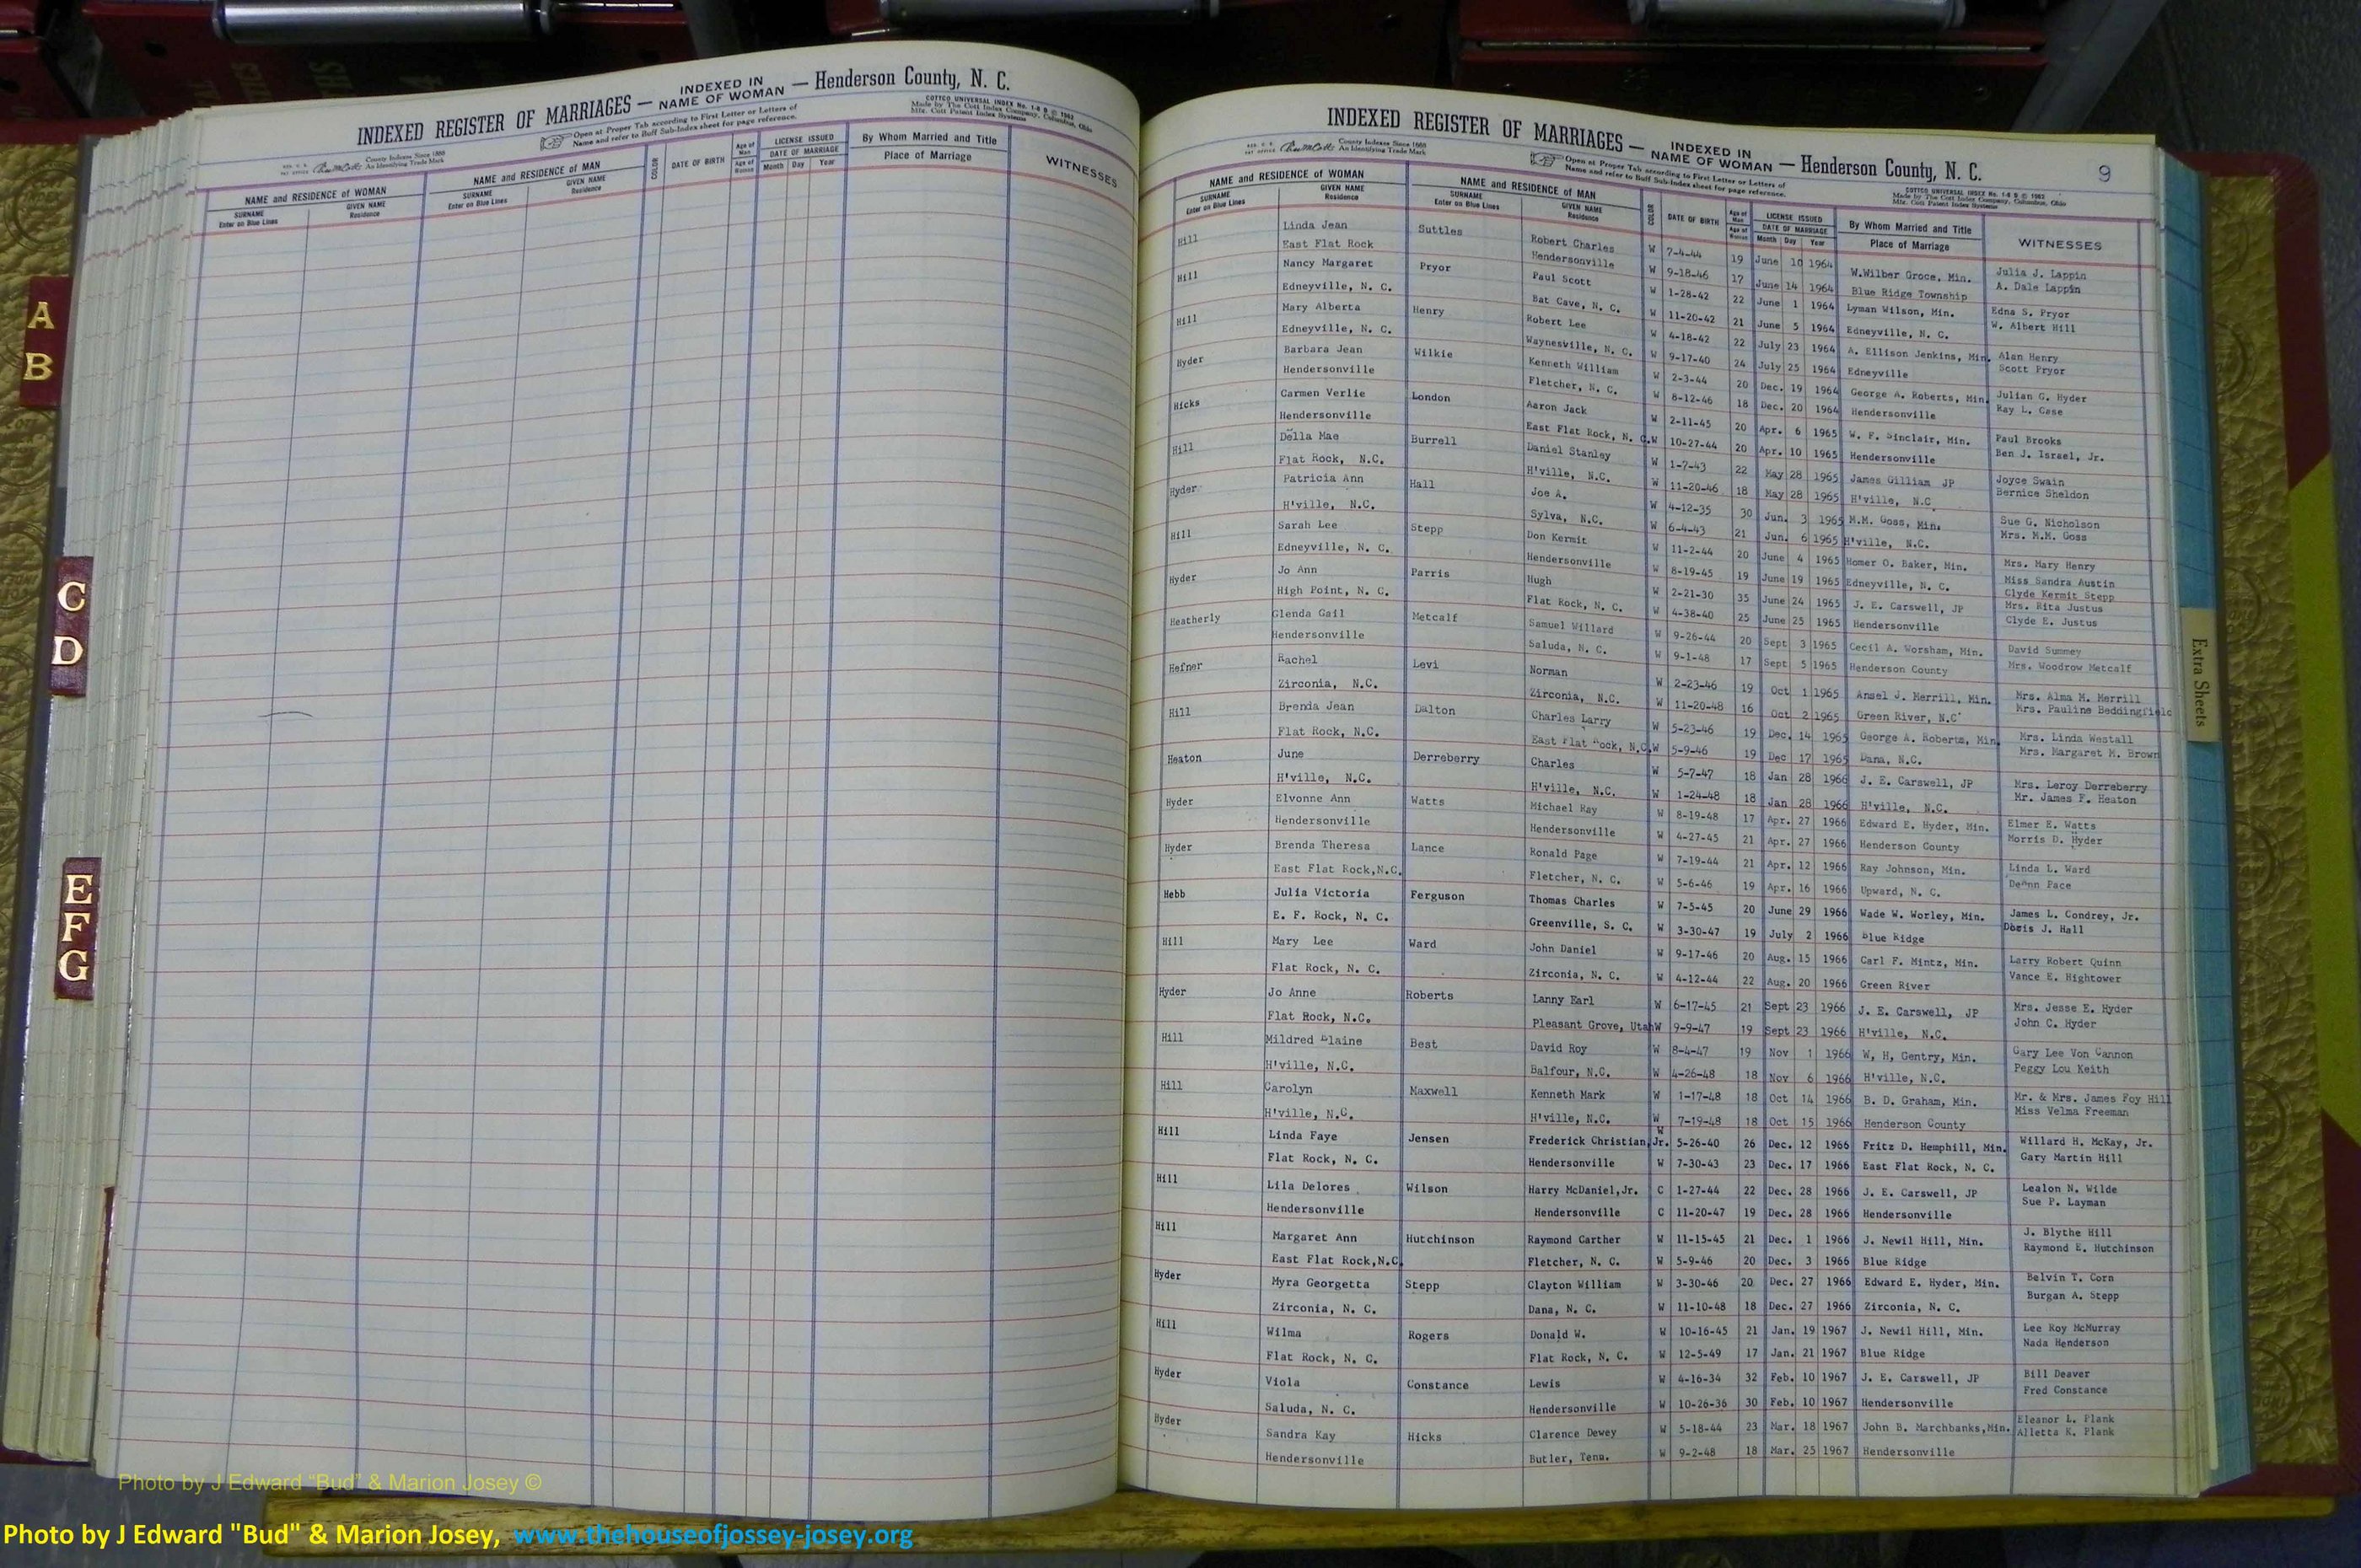 INDEXED REGISTER OF MARRIAGES — INDEXED IN NAME OF WOMAN — Henderson County, N. C.
Open at Proper Tab according to First Letter or Letters of
Name and refer to Buff Sub-Index sheet for page reference.
COTTCO UNIVERSAL INDEX No. 1-8 B © 1963
Made by The Cott Index Company, Columbus, Ohio
Mfg. Cott Patent Index Systems
County Indexes Since 1888
An Identifying Trade Mark
NAME and RESIDENCE of WOMAN NAME and RESIDENCE of MAN COLOR DATE OF BIRTH Age of Man Age of Woman LICENSE ISSUED DATE OF MARRIAGE Month Day Year By Whom Married and Title Place of Marriage WITNESSES
SURNAME Enter on Blue Lines GIVEN NAME Residence SURNAME Enter on Blue Lines GIVEN NAME Residence
A
B
C
D
E
F
G
INDEXED REGISTER OF MARRIAGES — INDEXED IN NAME OF WOMAN — Henderson County, N. C. 9
Open at Proper Tab according to First Letter or Letters of
Name and refer to Buff Sub-Index sheet for page reference.
COTTCO UNIVERSAL INDEX No. 1-8 B © 1963
Made by The Cott Index Company, Columbus, Ohio
Mfg. Cott Patent Index Systems
County Indexes Since 1888
An Identifying Trade Mark
NAME and RESIDENCE of WOMAN NAME and RESIDENCE of MAN COLOR DATE OF BIRTH Age of Man Age of Woman LICENSE ISSUED DATE OF MARRIAGE Month Day Year By Whom Married and Title Place of Marriage WITNESSES
SURNAME Enter on Blue Lines GIVEN NAME Residence SURNAME Enter on Blue Lines GIVEN NAME Residence
Hill Linda Jean Suttles Robert Charles W 7-4-44 19 June 10 1964 W.Wilber Groce, Min. Julia J. Lappin
East Flat Rock Hendersonville W 9-18-46 17 June 14 1964 Blue Ridge Township A. Dale Lappin
Hill Nancy Margaret Pryor Paul Scott W 1-28-42 22 June 1 1964 Lyman Wilson, Min. Edna S. Pryor
Edneyville, N. C. Bat Cave, N. C. W 11-20-42 21 June 5 1964 Edneyville, N. C. W. Albert Hill
Hill Mary Alberta Henry Robert Lee W 4-18-42 22 July 23 1964 A. Ellison Jenkins, Min. Alan Henry
Edneyville, N. C. Waynesville, N. C. W 9-17-40 24 July 25 1964 Edneyville Scott Pryor
Hyder Barbara Jean Wilkie Kenneth William W 2-3-44 20 Dec. 19 1964 George A. Roberts, Min. Julian G. Hyder
Hendersonville Fletcher, N. C. W 8-12-46 18 Dec. 20 1964 Hendersonville Ray L. Case
Hicks Carmen Verlie London Aaron Jack W 2-11-45 20 Apr. 6 1965 W. F. Sinclair, Min. Paul Brooks
Hendersonville East Flat Rock, N. C. W 10-27-44 20 Apr. 10 1965 Hendersonville Ben J. Israel, Jr.
Hill Della Mae Burrell Daniel Stanley W 1-7-43 22 May 28 1965 James Gilliam JP Joyce Swain
Flat Rock, N.C. H'ville, N.C. W 11-20-46 18 May 28 1965 H'ville, N.C Bernice Sheldon
Hyder Patricia Ann Hall Joe A. W 4-12-35 30 Jun. 3 1965 M.M. Goss, Min. Sue G. Nicholson
H'ville, N.C. Sylva, N.C. W 6-4-43 21 Jun. 6 1965 H'ville, N.C. Mrs. M.M. Goss
Hill Sarah Lee Stepp Don Kermit W 11-2-44 20 June 4 1965 Homer O. Baker, Min. Mrs. Mary Henry
Edneyville, N. C. Hendersonville W 8-19-45 19 June 19 1965 Edneyville, N. C. Miss Sandra Austin
Clyde Kermit Stepp
Hyder Jo Ann Parris Hugh W 2-21-30 35 June 24 1965 J. E. Carswell, JP Mrs. Rita Justus
High Point, N. C. Flat Rock, N. C. W 4-38-40 25 June 25 1965 Hendersonville Clyde E. Justus
Heatherly Glenda Gail Metcalf Samuel Willard W 9-26-44 20 Sept 3 1965 Cecil A. Worsham, Min. David Summey
Hendersonville Saluda, N. C. W 9-1-48 17 Sept 5 1965 Henderson County Mrs. Woodrow Metcalf
Hefner Rachel Levi Norman W 2-23-46 19 Oct 1 1965 Ansel J. Merrill, Min. Mrs. Alma M. Merrill
Zirconia, N.C. Zirconia, N.C. W 11-20-48 16 Oct 2 1965 Green River, N.C Mrs. Pauline Beddingfield
Hill Brenda Jean Dalton Charles Larry W 5-23-46 19 Dec. 14 1965 George A. Roberts, Min. Mrs. Linda Westall
Flat Rock, N.C. East Flat Rock, N.C. W 5-9-46 19 Dec 17 1965 Dana, N.C. Mrs. Margaret M. Brown
Heaton June Derreberry Charles W 5-7-47 18 Jan 28 1966 J. E. Carswell, JP Mrs. Leroy Derreberry
H'ville, N.C. H'ville, N.C. W 1-24-48 18 Jan 28 1966 H'ville, N.C. Mr. James F. Heaton
Hyder Elvonne Ann Watts Michael Ray W 8-19-48 17 Apr. 27 1966 Edward E. Hyder, Min. Elmer E. Watts
Hendersonville Hendersonville W 4-27-45 21 Apr. 27 1966 Henderson County Morris D. Hyder
Hyder Brenda Theresa Lance Ronald Page W 7-19-44 21 Apr. 12 1966 Ray Johnson, Min. Linda L. Ward
East Flat Rock,N.C. Fletcher, N. C. W 5-6-46 19 Apr. 16 1966 Upward, N. C. DeAnn Pace
Hebb Julia Victoria Ferguson Thomas Charles W 7-5-45 20 June 29 1966 Wade W. Worley, Min. James L. Condrey, Jr.
E. F. Rock, N. C. Greenville, S. C. W 3-30-47 19 July 2 1966 Blue Ridge Doris J. Hall
Hill Mary Lee Ward John Daniel W 9-17-46 20 Aug. 15 1966 Carl F. Mintz, Min. Larry Robert Quinn
Flat Rock, N. C. Zirconia, N. C. W 4-12-44 22 Aug. 20 1966 Green River Vance E. Hightower
Hyder Jo Anne Roberts Lanny Earl W 6-17-45 21 Sept 23 1966 J. E. Carswell, JP Mrs. Jesse E. Hyder
Flat Rock, N.C. Pleasant Grove, Utah W 9-9-47 19 Sept 23 1966 H'ville, N.C. John C. Hyder
Hill Mildred Elaine Best David Roy W 8-4-47 19 Nov 1 1966 W, H, Gentry, Min. Gary Lee Von Cannon
H'ville, N.C. Balfour, N.C. W 4-26-48 18 Nov 6 1966 H'ville, N.C. Peggy Lou Keith
Hill Carolyn Maxwell Kenneth Mark W 1-17-48 18 Oct 14 1966 B. D. Graham, Min. Mr. & Mrs. James Foy Hill
H'ville, N.C. H'ville, N.C. W 7-19-48 18 Oct 15 1966 Henderson County Miss Velma Freeman
Hill Linda Faye Jensen Frederick Christian,Jr. W 5-26-40 26 Dec. 12 1966 Fritz D. Hemphill, Min. Willard H. McKay, Jr.
Flat Rock, N. C. Hendersonville W 7-30-43 23 Dec. 17 1966 East Flat Rock, N. C. Gary Martin Hill
Hill Lila Delores Wilson Harry McDaniel,Jr. C 1-27-44 22 Dec. 28 1966 J. E. Carswell, JP Lealon N. Wilde
Hendersonville Hendersonville C 11-20-47 19 Dec. 28 1966 Hendersonville Sue P. Layman
Hill Margaret Ann Hutchinson Raymond Carther W 11-15-45 21 Dec. 1 1966 J. Newil Hill, Min. J. Blythe Hill
East Flat Rock,N.C. Fletcher, N. C. W 5-9-46 20 Dec. 3 1966 Blue Ridge Raymond E. Hutchinson
Hyder Myra Georgetta Stepp Clayton William W 3-30-46 20 Dec. 27 1966 Edward E. Hyder, Min. Belvin T. Corn
Zirconia, N. C. Dana, N. C. W 11-10-48 18 Dec. 27 1966 Zirconia, N. C. Burgan A. Stepp
Hill Wilma Rogers Donald W. W 10-16-45 21 Jan. 19 1967 J. Newil Hill, Min. Lee Roy McMurray
Flat Rock, N. C. Flat Rock, N. C. W 12-5-49 17 Jan. 21 1967 Blue Ridge Nada Henderson
Hyder Viola Constance Lewis W 4-16-34 32 Feb. 10 1967 J. E. Carswell, JP Bill Deaver
Saluda, N. C. Hendersonville W 10-26-36 30 Feb. 10 1967 Hendersonville Fred Constance
Hyder Sandra Kay Hicks Clarence Dewey W 5-18-44 23 Mar. 18 1967 John B. Marchbanks,Min. Eleanor L. Plank
Hendersonville Butler, Tenn. W 9-2-48 18 Mar. 25 1967 Hendersonville Alletta K. Plank
Extra Sheets
Photo by J Edward “Bud” & Marion Josey ©
Photo by J Edward "Bud" & Marion Josey, www.thehouseofjossey-josey.org